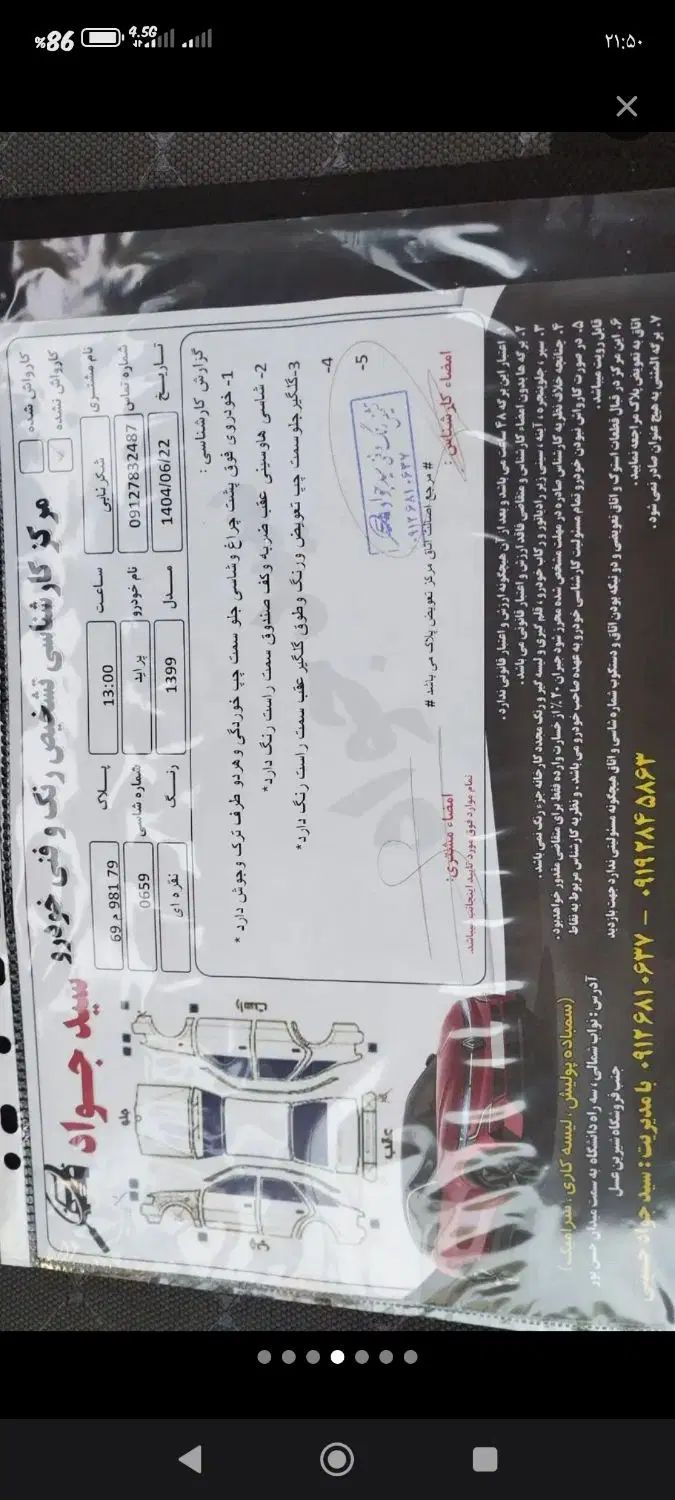 %86 4.5G ۲۱:۵۰
سید جواد
مرکز کارشناسی تشخیص رنگ و فنی خودرو
کارواش شده
کارواش نشده
نام مشتری شکرنایی ساعت 13:00 پلاک 69 م 981 79
شماره تماس 09127832487 نام خودرو پراید شماره شاسی 0659
تاریخ 1404/06/22 مدل 1399 رنگ نقره ای
گزارش کارشناسی :
1- خودروی فوق پشت چراغ وشاسی جلو سمت چپ خوردگی و هردو طرف ترک وجوش دارد *
2- شاسی هاوسینی عقب ضربه وکف صندوق سمت راست رنگ دارد*
3-گلگیر جلو سمت چپ تعویض ورنگ وطوق گلگیر عقب سمت راست رنگ دارد*
4-
5-
۰۹۱۲۶۸۱۰۶۳۷
# مرجع اصالت اتاق مرکز تعویض پلاک می باشد #
امضاء کارشناس :
امضاء مشتری:
تمام موارد فوق مورد تایید اینجانب میباشد.
جلو
عقب
۱. اعتبار این برگه ۴۸ ساعت می باشد و بعد از آن هیچگونه ارزش و اعتبار قانونی ندارد.
۲. برگه ها بدون امضاء کارشناس و متقاضی فاقد ارزش و اعتبار قانونی می باشد.
۳. سپر، جلوپنجره، آینه، سینی زیر رادیاتور و رکاب خودرو، قلم گیری و لیسه گیر و رنگ مجدد کارخانه جزء رنگ نمی باشد.
۴. چنانچه خلاف نظریه کارشناس صادره در مهلت مشخص شده محرز شود جبران ۲۰٪ از خسارت وارده فقط برای متقاضی مقدور خواهد بود.
۵. در صورت کارواش نبودن خودرو تمام مسئولیت کارشناسی خودرو به عهده صاحب خودرو می باشد. و نظریه کارشناس مربوط به نقاط
قابل رویت میباشد.
۶. این مرکز در قبال قطعات استوک و اتاق تعویضی و دو تیکه بودن اتاق و دستکوب شماره شاسی و اتاق هیچگونه مسئولیتی ندارد جهت بازدید
اتاق به تعویض پلاک مراجعه نمایید.
۷. برگه المثنی به هیچ عنوان صادر نمی شود.
(سمباده پولیش، لیسه کاری، سرامیک)
آدرس : نواب شمالی، سه راه دانشگاه به سمت میدان حسن پور
جنب فروشگاه شیرین عسل
با مدیریت : سید جواد حسینی ۰۹۱۲۶۸۱۰۶۳۷ – ۰۹۱۹۲۸۴۵۸۶۳